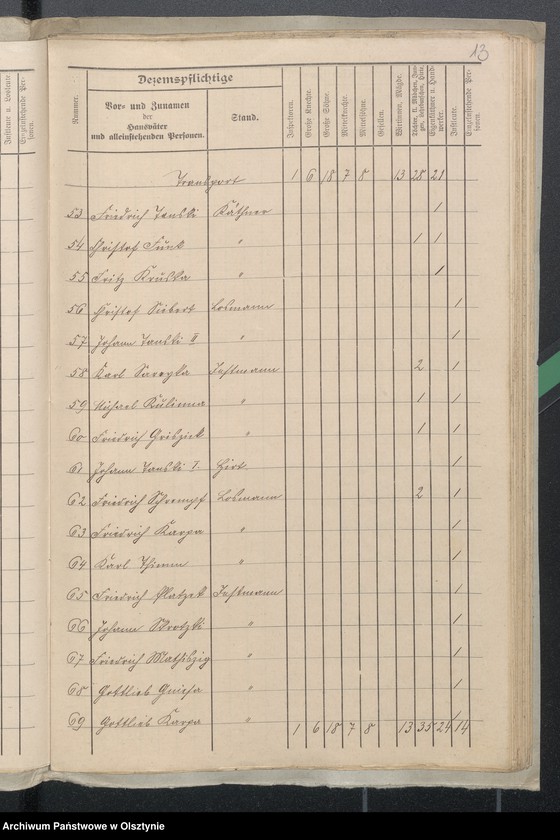 13
Dezemspflichtige
Nummer. Vor- und Zunamen der Hausväter und alleinstehenden Personen. Stand. Inspektoren. Große Knechte. Große Söhne. Mittelknechte. Mittelsöhne. Gesellen. Wirtinnen, Mägde. Eigenkätner u. Handwerker. Instleute. Einzelstehende Personen.
Transport 1 6 18 7 8 13 28 21
53 Friedrich Tanski Käthner 1
54 Christof Funk " 1 1
55 Fritz Kruska " 1
56 Christof Siebert Losmann 1
57 Johann Tanski II " 1
58 Karl Sarezka Instmann 2 1
59 Michael Kulinna " 1 1
60 Friedrich Gritziek " 1 1
61 Johann Tanski I. Hirt. 1
62 Friedrich Schrempf Losmann 2 1
63 Friedrich Karpa " 1
64 Karl Thimm " 1
65 Friedrich Platzek Instmann 1
66 Johann Skrotzki " 1
67 Friedrich Mathiszig " 1
68 Gottlieb Gniesa " 1
69 Gottlieb Karpa " 1
1 6 18 7 8 13 35 24 14
Archiwum Państwowe w Olsztynie